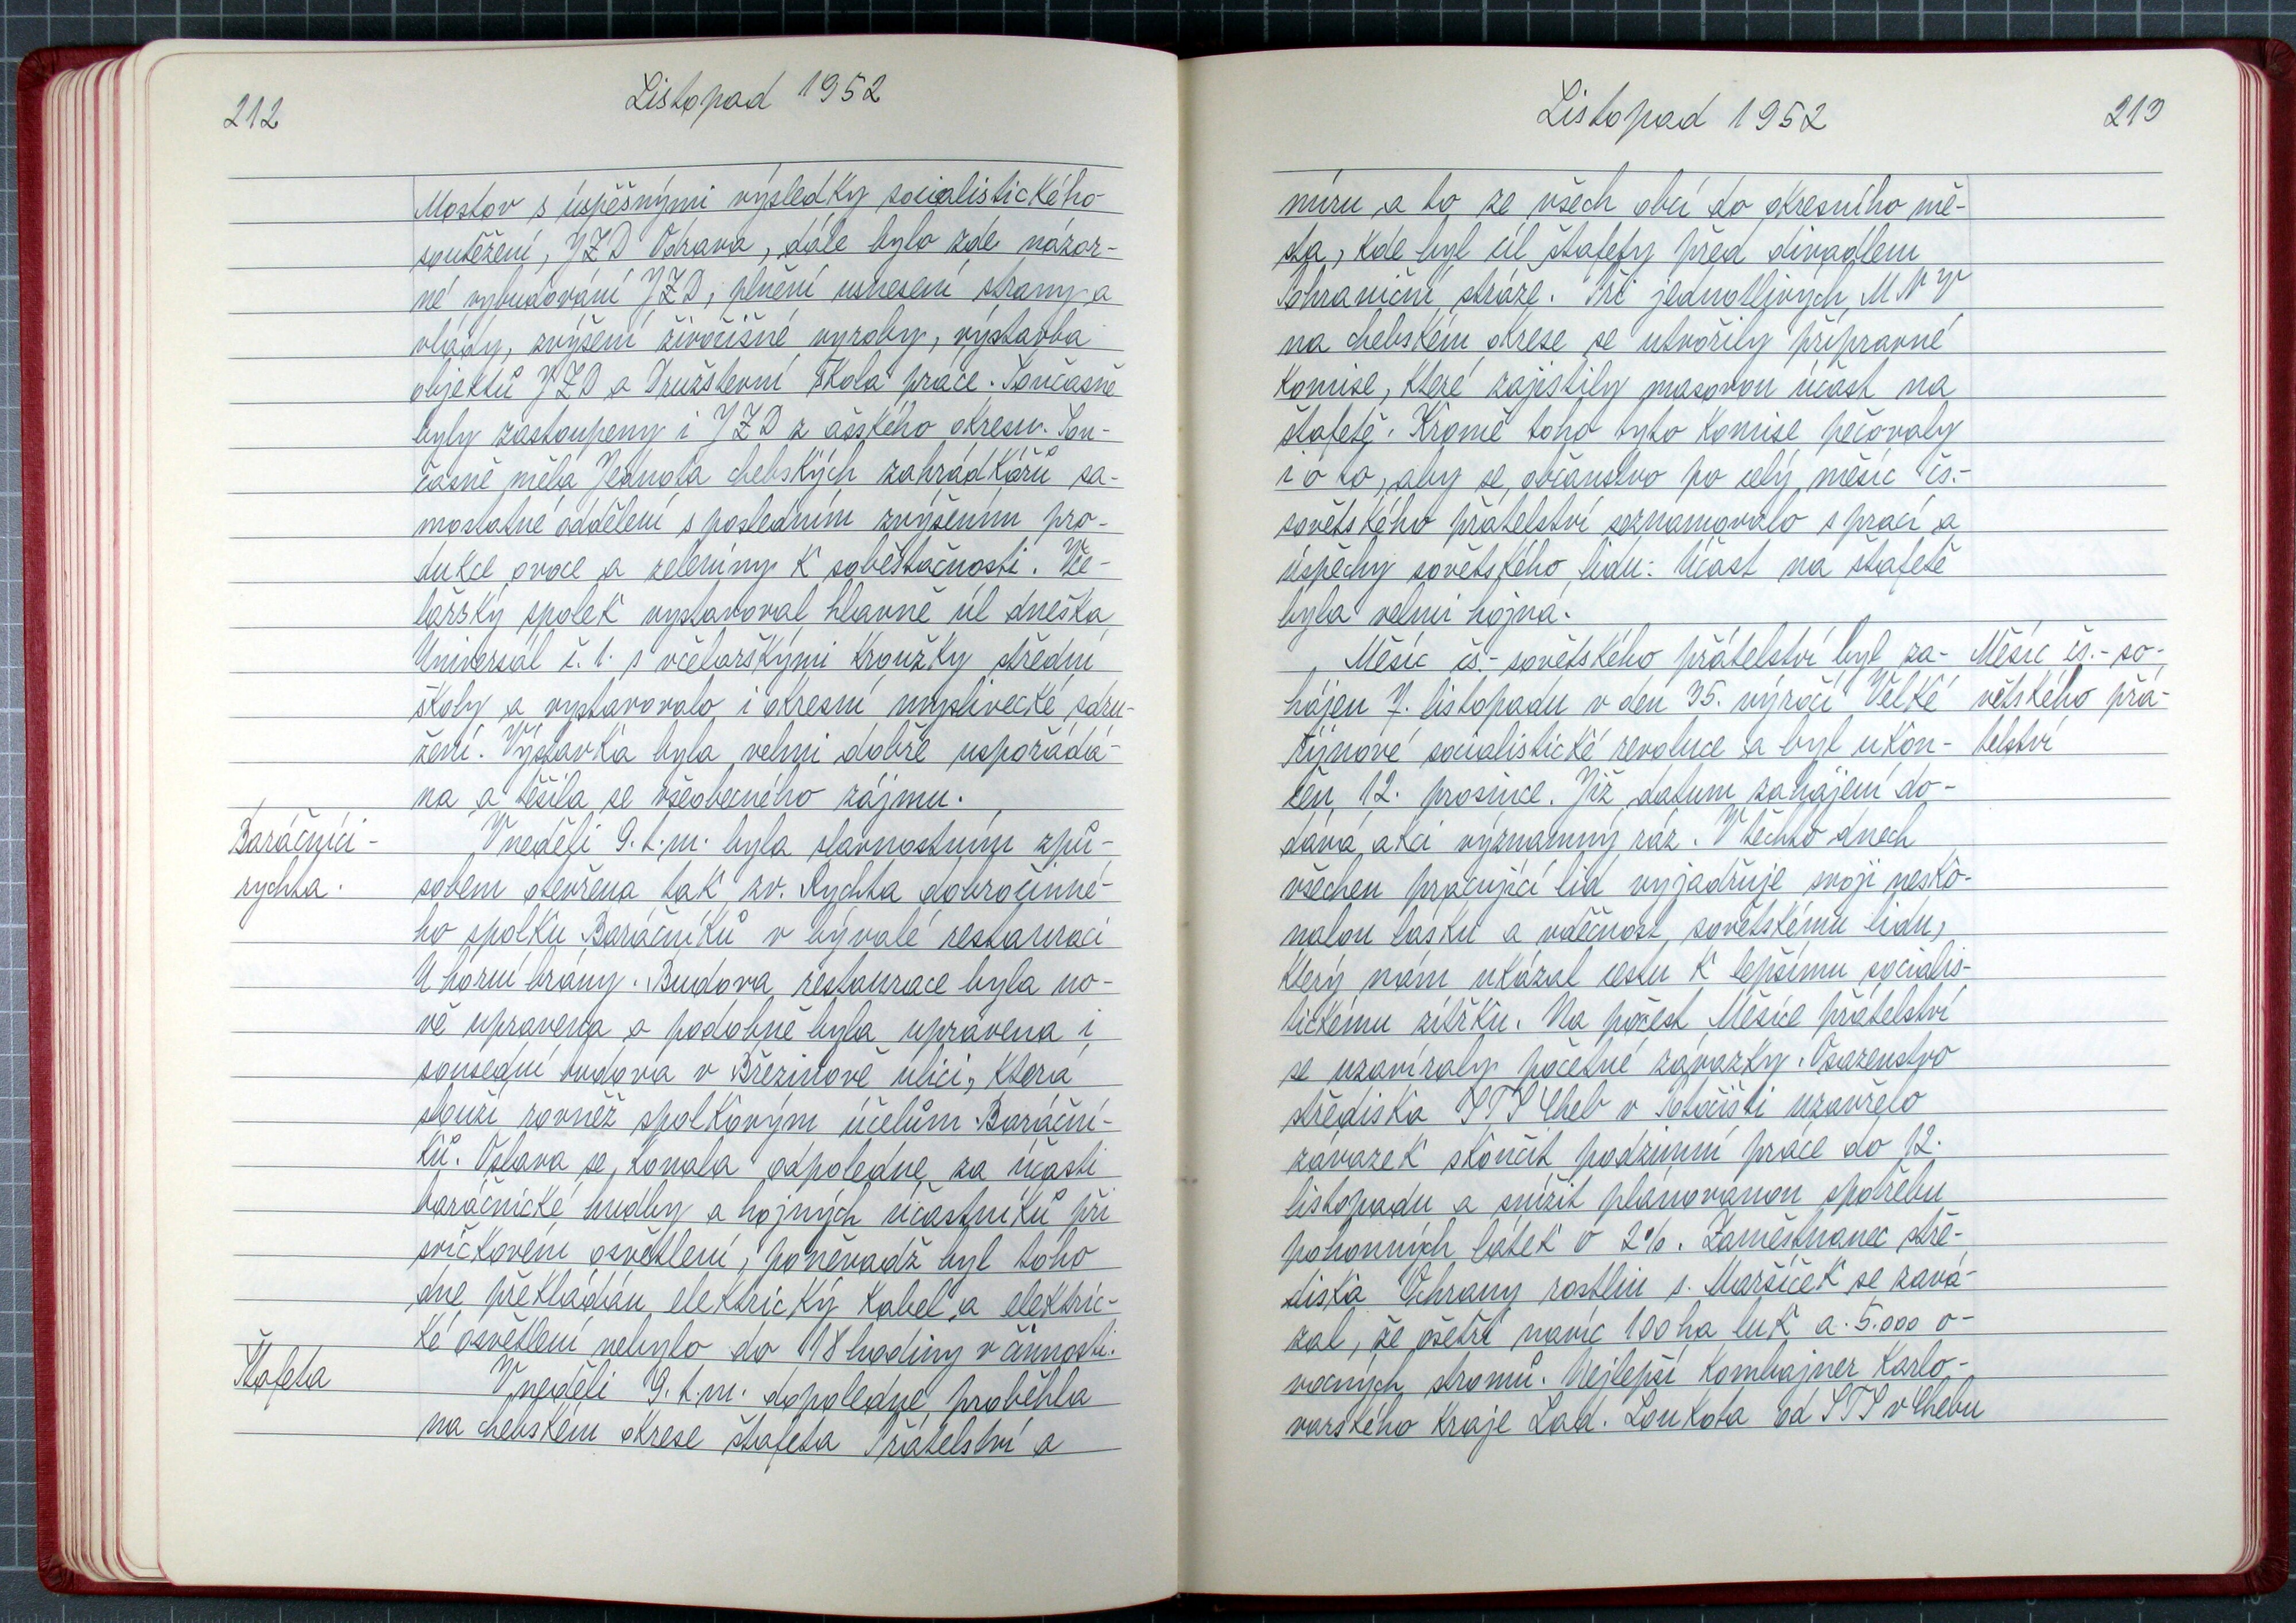 212
Listopad 1952
Mostov s úspěšnými výsledky socialistického
soutěžení, JZD Odrava, dále bylo zde názor-
né vybudování JZD, plnění usnesení strany a
vlády, zvýšení živočišné vyroby, výstavba
objektů JZD a Družstevní škola práce. Současně
byly zastoupeny i JZD z ašského okresu. Sou-
časně měla Jednota chebských zahrádkářů sa-
mostatné oddělení s posledním zvýšením pro-
dukce ovoce a zeleniny k soběstačnosti. Vče-
lařský spolek vystavoval hlavně úl dneška
Universál č. 1. s včelařskými kroužky střední
školy a vystavovalo i okresní myslivecké sdru-
žení. Výstavka byla velmi dobře uspořádá-
na a těšila se všeobecného zájmu.
Baráčníci -
rychta.
V neděli 9. t. m. byla slavnostním způ-
sobem otevřena tak zv. Rychta dobročinné-
ho spolku Baráčníků v bývalé restauraci
U horní brány. Budova restaurace byla no-
vě upravena a podobně byla upravena i
sousední budova v Březinově ulici, která
slouží rovněž spolkovým účelům Baráční-
ků. Oslava se konala odpoledne za účasti
baráčnické hudby a hojných účastníků při
svíčkovém osvětlení, poněvadž byl toho
dne překládán elektrický kabel a elektric-
ké osvětlení nebylo do 18 hodiny v činnosti.
Štafeta
V neděli 9. t. m. dopoledne proběhla
na chebském okrese štafeta Přátelství a
Listopad 1952
213
míru a to ze všech obcí do okresního mě-
sta, kde byl cíl štafety před divadlem
Pohraniční stráže. Při jednotlivých MNV
na chebském okrese se utvořily přípravné
komise, které zajistily masovou účast na
štafetě. Kromě toho tyto komise pečovaly
i o to, aby se občanstvo po celý měsíc čs.-
sovětského přátelství seznamovalo s prací a
úspěchy sovětského lidu. Účast na štafetě
byla velmi hojná.
Měsíc čs.- sovětského přátelství byl za-
hájen 7. listopadu v den 35. výročí Velké
říjnové socialistické revoluce a byl ukon-
čen 12. prosince. Již datum zahájení do-
dává akci významný ráz. V těchto dnech
všechen pracující lid vyjadřuje svoji nesko-
nalou lásku a vděčnost sovětskému lidu,
který nám ukázal cestu k lepšímu socialis-
tickému zítřku. Na počest Měsíce přátelství
se uzavíraly početné závazky. Osazenstvo
střediska STS Cheb v Potočišti uzavřelo
závazek skončit podzimní práce do 12.
listopadu a snížit plánovanou spotřebu
pohonných látek o 2%. Zaměstnanec stře-
diska Ochrany rostlin s. Maršíček se zavá-
zal, že ošetří navíc 100 ha luk a 5.000 o-
vocných stromů. Nejlepší kombajner Karlo-
varského kraje Lad. Loukota od STS v Chebu
Měsíc čs.- so-
větského přá-
telství